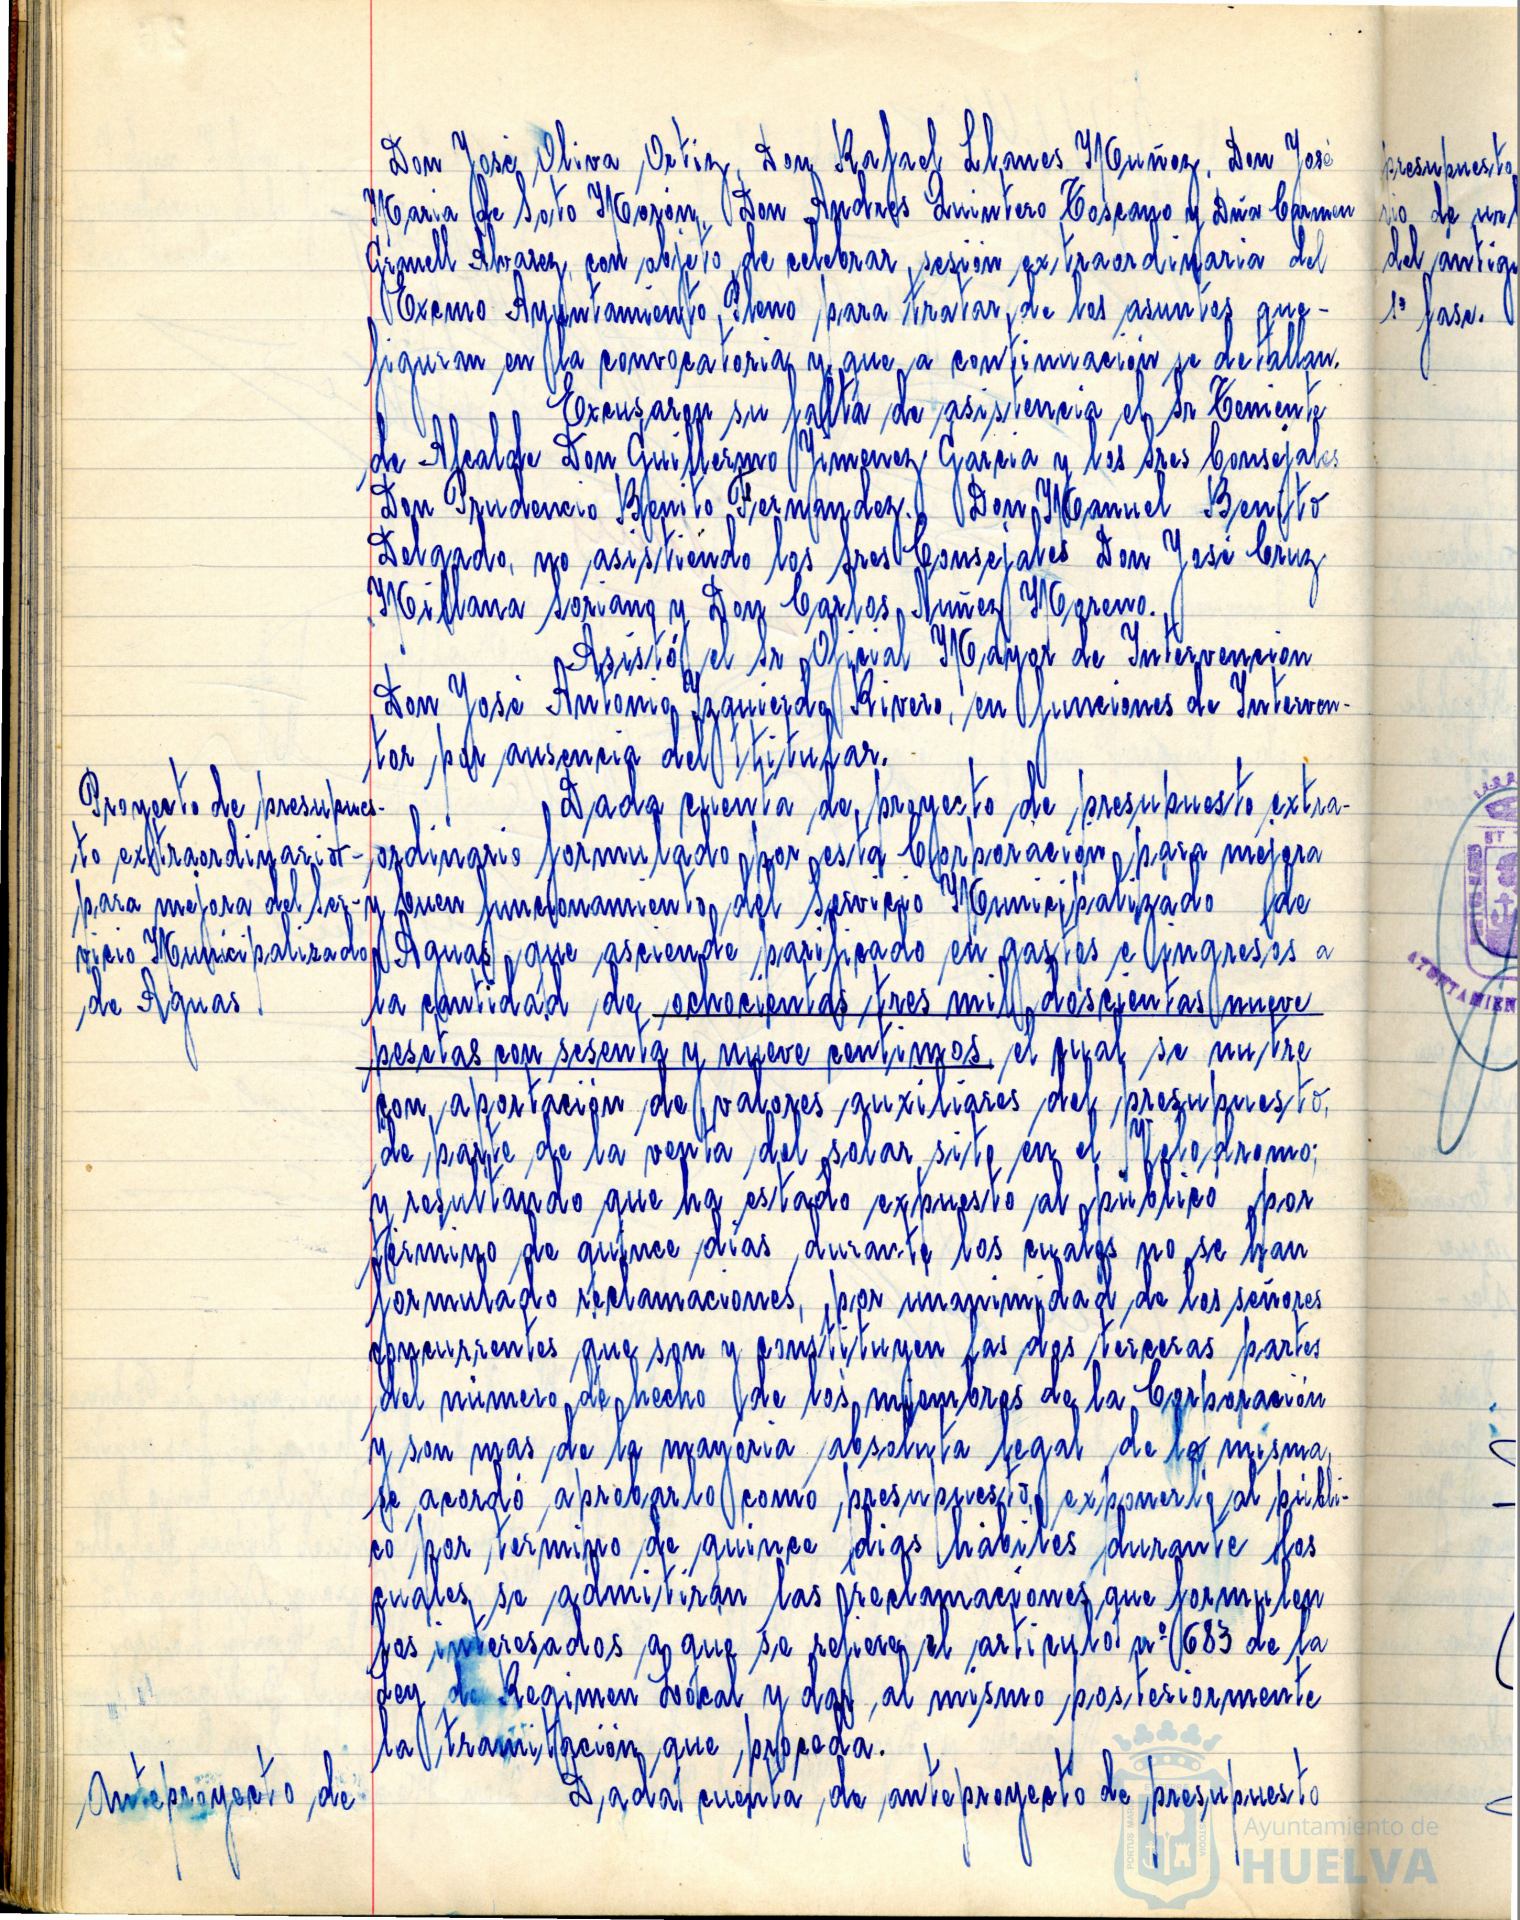 Don José Oliva Ortiz, Don Rafael Llanes Muñoz, Don José
Maria de Soto Morón, Don Andres Quintero Toscano y Dña Carmen
Grauell Alvarez, con objeto de celebrar sesión extraordinaria del
Excmo Ayuntamiento Pleno para tratar de los asuntos que-
figuran en la convocatoria y que a continuación se detallan.
Excusaron su falta de asistencia el Sr Teniente
de Alcalde Don Guillermo Jimenez Garcia y los Sres Consejales
Don Prudencio Benito Fernandez. Don Manuel Benito
Delgado, no asistiendo los Sres Consejales Don José Cruz
Millana Soriano y Don Carlos Nuñez Moreno.
Asistó el Sr Oficial Mayor de Intervención
Don José Antonio Izquierdo Rivero, en funciones de Interven-
tor por ausencia del titular.
Proyecto de presupues-
to extraordinario-
para mejora del Ser-
vicio Municipalizado
de Aguas.
Dada cuenta de proyecto de presupuesto extra-
ordinario formulado por esta Corporación para mejora
y buen funcionamiento del Servicio Municipalizado de
Aguas que asciende parificado en gastos e ingresos a
la cantidad de ochocientas tres mil doscientas nueve
pesetas con sesenta y nueve centimos, el cual se nutre
con aportación de valores auxiliares del presupuesto,
de parte de la venta del solar sito en el Velodromo;
y resultando que ha estado expuesto al público por
término de quince dias durante los cuales no se han
formulado reclamaciones, por unanimidad de los señores
concurrentes que son y constituyen las dos terceras partes
del número de hecho de los miembros de la Corporación
y son mas de la mayoria absoluta legal de la misma,
se acordó aprobarlo como presupuesto, exponerlo al públi-
co por termino de quince dias hábiles durante los
cuales se admitirán las reclamaciones que formulen
los interesados a que se refiere el articulo nº 683 de la
Ley de Regimen Local y dar al mismo posteriormente
la tramitación que proceda.
Anteproyecto de
Dada cuenta de anteproyecto de presupuesto
presupuesto
rio de
del antig
1ª fase.
AYUNTAMIEN
Ayuntamiento de
HUELVA